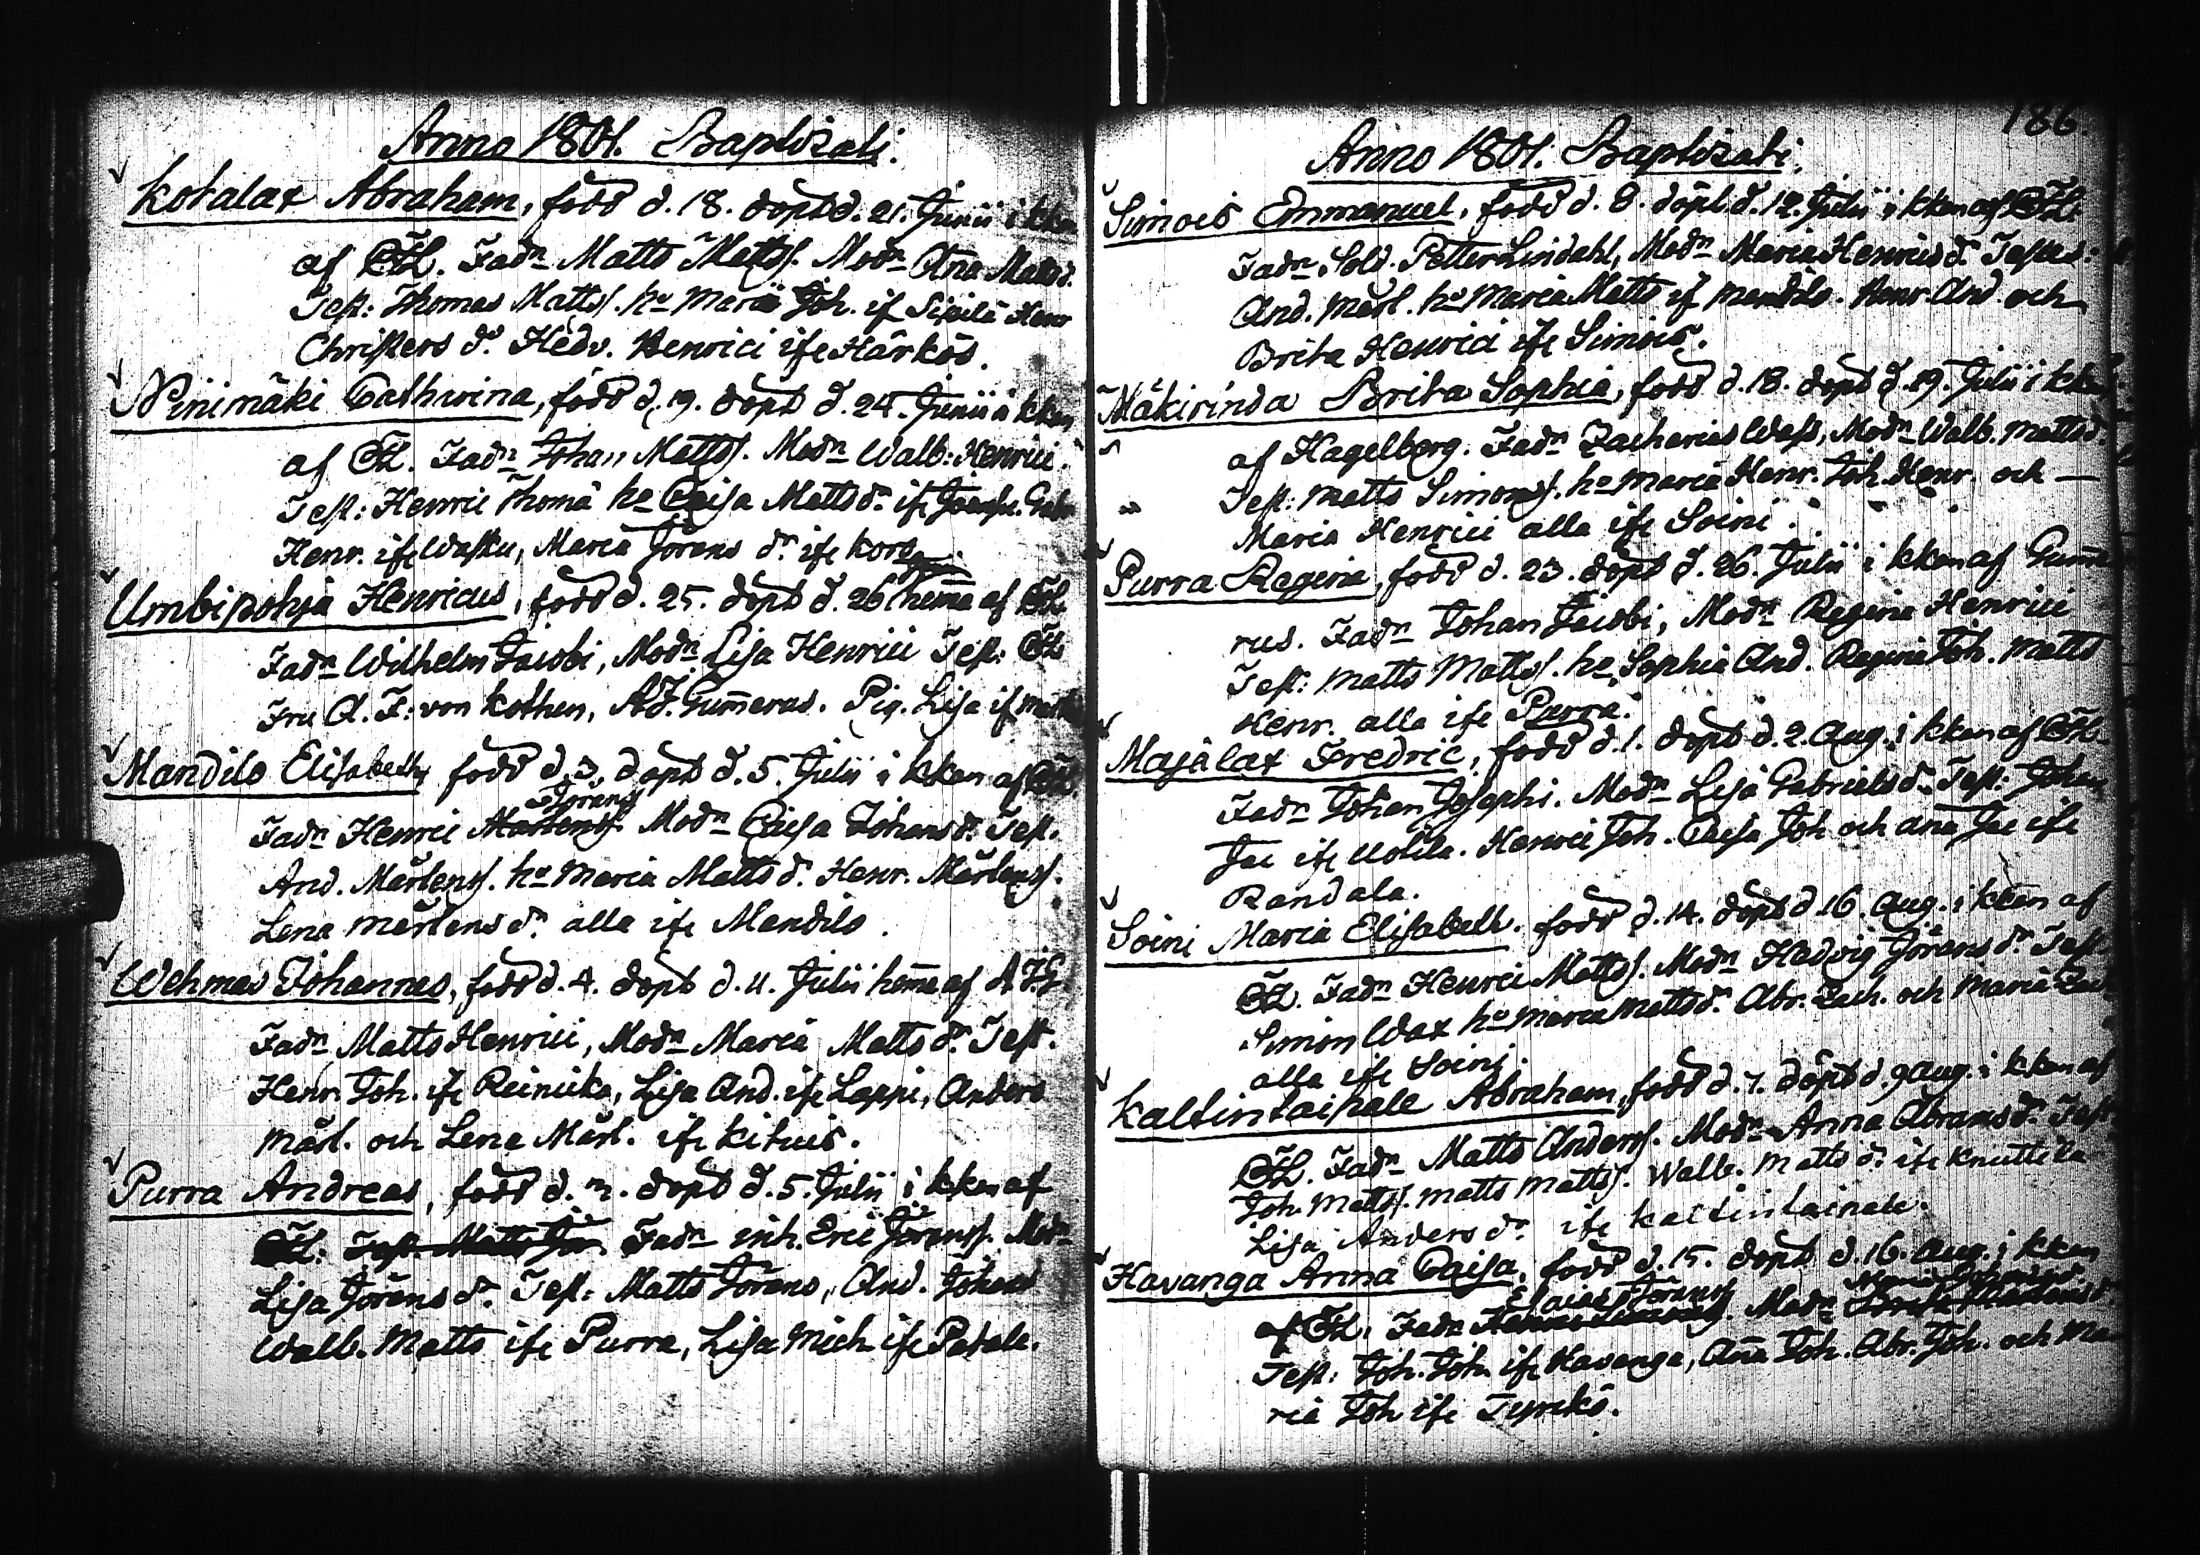 Anno 1801. Baptizati.
Kotalax Abraham, född d. 18. döpt d. 21. Junii i kkan
af Fadn Matts Matts. Modn Ana Matsd.
Test: Thomas Matts. ho Maria Joh. if Sipilä Henr
Christers dr. Hedv. Henrici ife Härkös.
Niinimäki Cathrina, född d. 19. döpt d. 24. Junii i kkan
af Fadn Johan Matts. Modn Walb: Henrici
Test: Henric Thomä ho Caisa Matts dr. ife
Henr. ife Wasku, Maria Jörans dr. ife
Umbipohja Henricus, född d. 25. döpt d. 26 hema af
Fadn Wilhelm Jacobi, Modn Lisa Henrici Test:
Fru A. F: von Kothen, A.J. Gumerus. Pig. Lisa if
Mandilo Elisabeth, född d. 3. döpt d. 5. Julii i kkan af
Jörans
Fadn Henric Mårtens. Modn Caisa Johans dr. Test.
And. Mårtens. ho Maria Matts dr. Henr. Mårtens.
Lena Mårtens dr. alla ife Mandilo.
Wehmas Johannes, född d. 4. döpt d. 11. Julii hema af A.J.G
Fadn Matts Henrici, Modn Maria Matts dr. Test.
Henr. Joh. ife Reinicka, Lisa And. ife Lappi, Anders
Mårt. och Lena Mårt. ife Kituis.
Purra Andreas, född d. döpt d. 5. Julii i kkan af
Test. Matts Jör. Fadn inh. Eric Jörans. Modn
Lisa Jörans dr. Test: Matts Jörans, And. Johans
Walb. Matts ife Purra, Lisa Mich ife Patala.
186.
Anno 1801. Baptizati.
Simois Emmanuel, född d. 8. döpt d. 12. Julii i kkan af
Fadn. Sold. Petter Lindahl, Modn Maria Henrics dr. Testes:
And. Mårt. ho Maria Matts if Mandilo. Henr And och
Brita Henrici ife Simois.
Mäkirinda Brita Sophia, född d. 18. döpt d. 19. Julii i kkan
af Hagelberg. Fadn Zacharias Wass, Modn Walb. Mattsd.
Test: Matts Simons. ho Maria Henr. Joh. Henr. och
Maria Henrici alla ife Soini.
Purra Regina, född d. 23. döpt d. 26. Julii i kkan af Gume
rus. Fadn Johan Jacobi, Modn Regina Henrici
Test: Matts Matts. ho Sophia And. Regina Joh. Matts
Henr. alla ife Purra.
Majalax Fredric, född d. 1. döpt d. 2. Aug. i kkan af
Fadn Johan Josephi. Modn Lisa Gabriels dr. Test: Johan
Jac ife Uotila. Henric Joh. Caisa Joh och Ana Jac ife
Randala.
Soini Maria Elisabeth. född d. 14. döpt d 16. Aug. i kkan af
Fadn Henric Matts. Modn Hedvig Jörans dr. Test
Simon Wax ho Maria Matts dr. Abr. Zach. och Maria Zach
alla ife Soini.
Kaltintaipale Abraham, född d. 7. döpt d. 9 Aug. i kkan af
Fadn Matts Anders. Modn Anna Abrams dr. Test
Joh. Matts. Matts Matts. Walb. Matts dr. ife Knuttila
Lisa Anders dr. ife Kaltintaipale.
Havanga Anna Caisa, född d. 15. döpt d. 16. Aug. i kkan
Esaias Jörans Maria
af Fadn Modn
Test: Joh. Joh. ife Havanga, Ana Joh. Abr. Joh. och Ma
ria Joh ife Tyrkö.